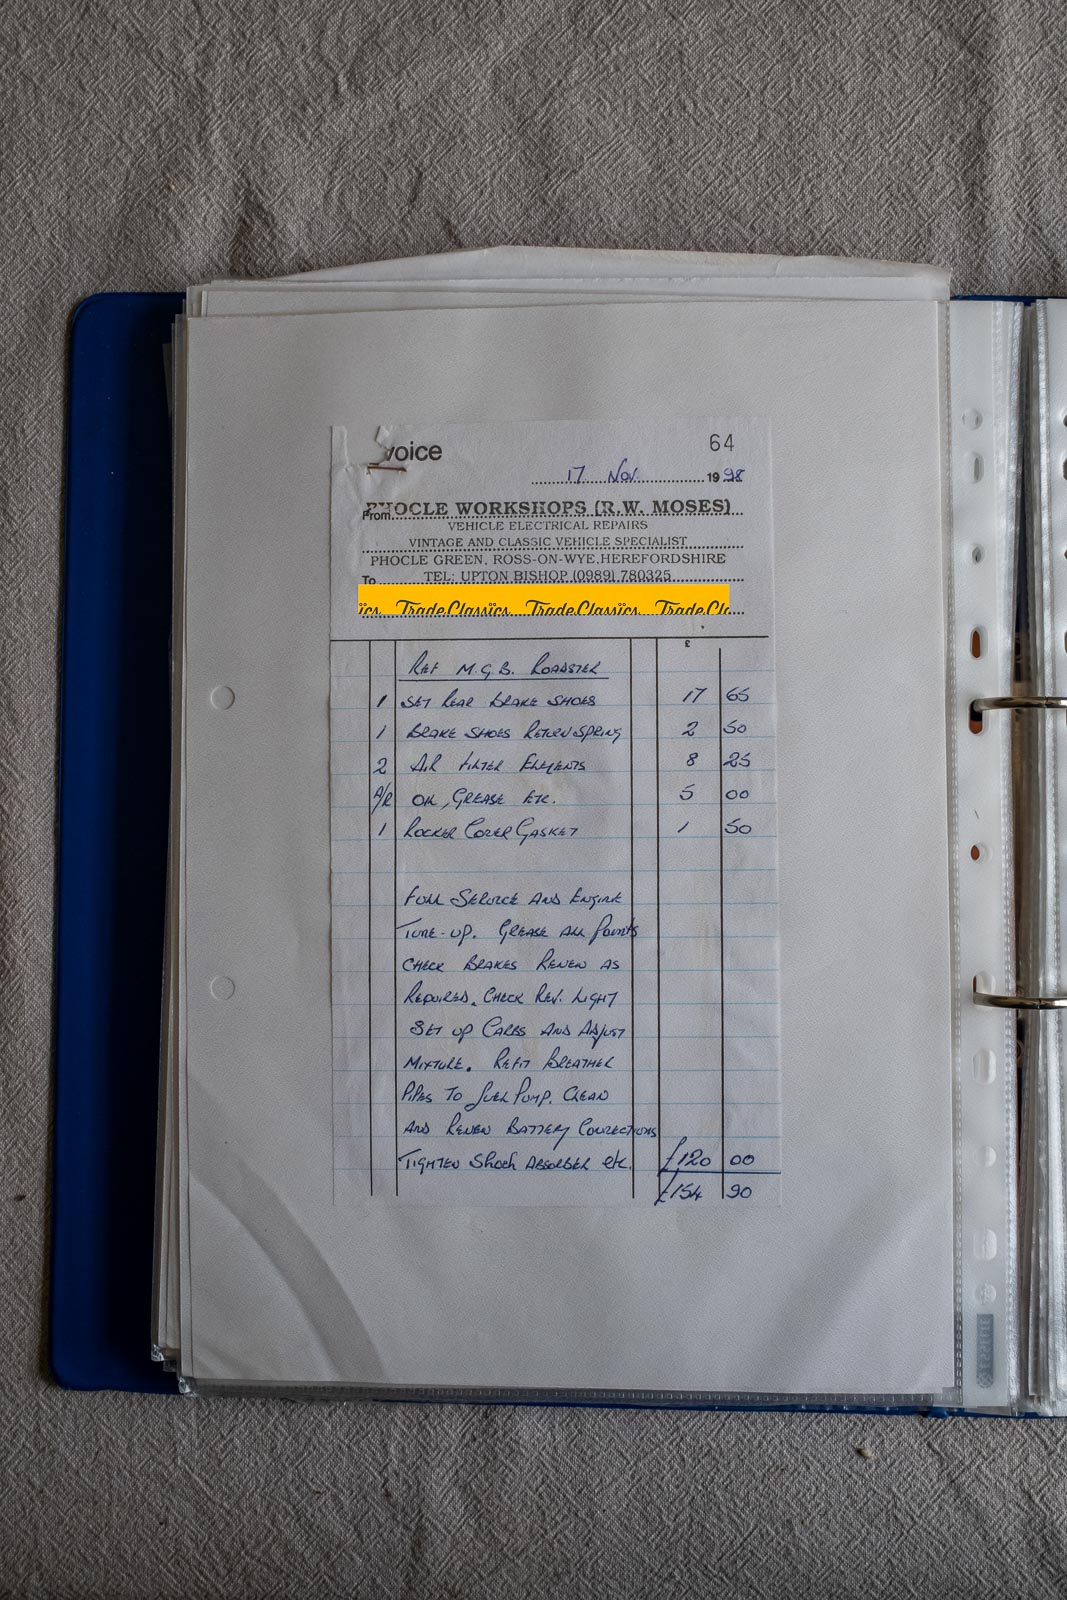 voice
64
17 Nov. 1998
From PHOCLE WORKSHOPS (R.W. MOSES)
VEHICLE ELECTRICAL REPAIRS
VINTAGE AND CLASSIC VEHICLE SPECIALIST
PHOCLE GREEN, ROSS-ON-WYE, HEREFORDSHIRE
To TEL: UPTON BISHOP (0989) 780325
ics TradeClassics TradeClassics TradeCl
£
REF M.G.B. ROADSTER
1 SET REAR BRAKE SHOES 17 65
1 BRAKE SHOES RETURN SPRING 2 50
2 AIR FILTER ELEMENTS 8 25
A/R OIL, GREASE ETC. 5 00
1 ROCKER COVER GASKET 1 50
FULL SERVICE AND ENGINE
TUNE-UP. GREASE ALL POINTS
CHECK BRAKES RENEW AS
REQUIRED. CHECK REV. LIGHT
SET UP CARBS AND ADJUST
MIXTURE. REFIT BREATHER
PIPES TO FUEL PUMP. CLEAN
AND RENEW BATTERY CONNECTIONS
TIGHTEN Shock ABSORBER etc. £120 00
£154 90